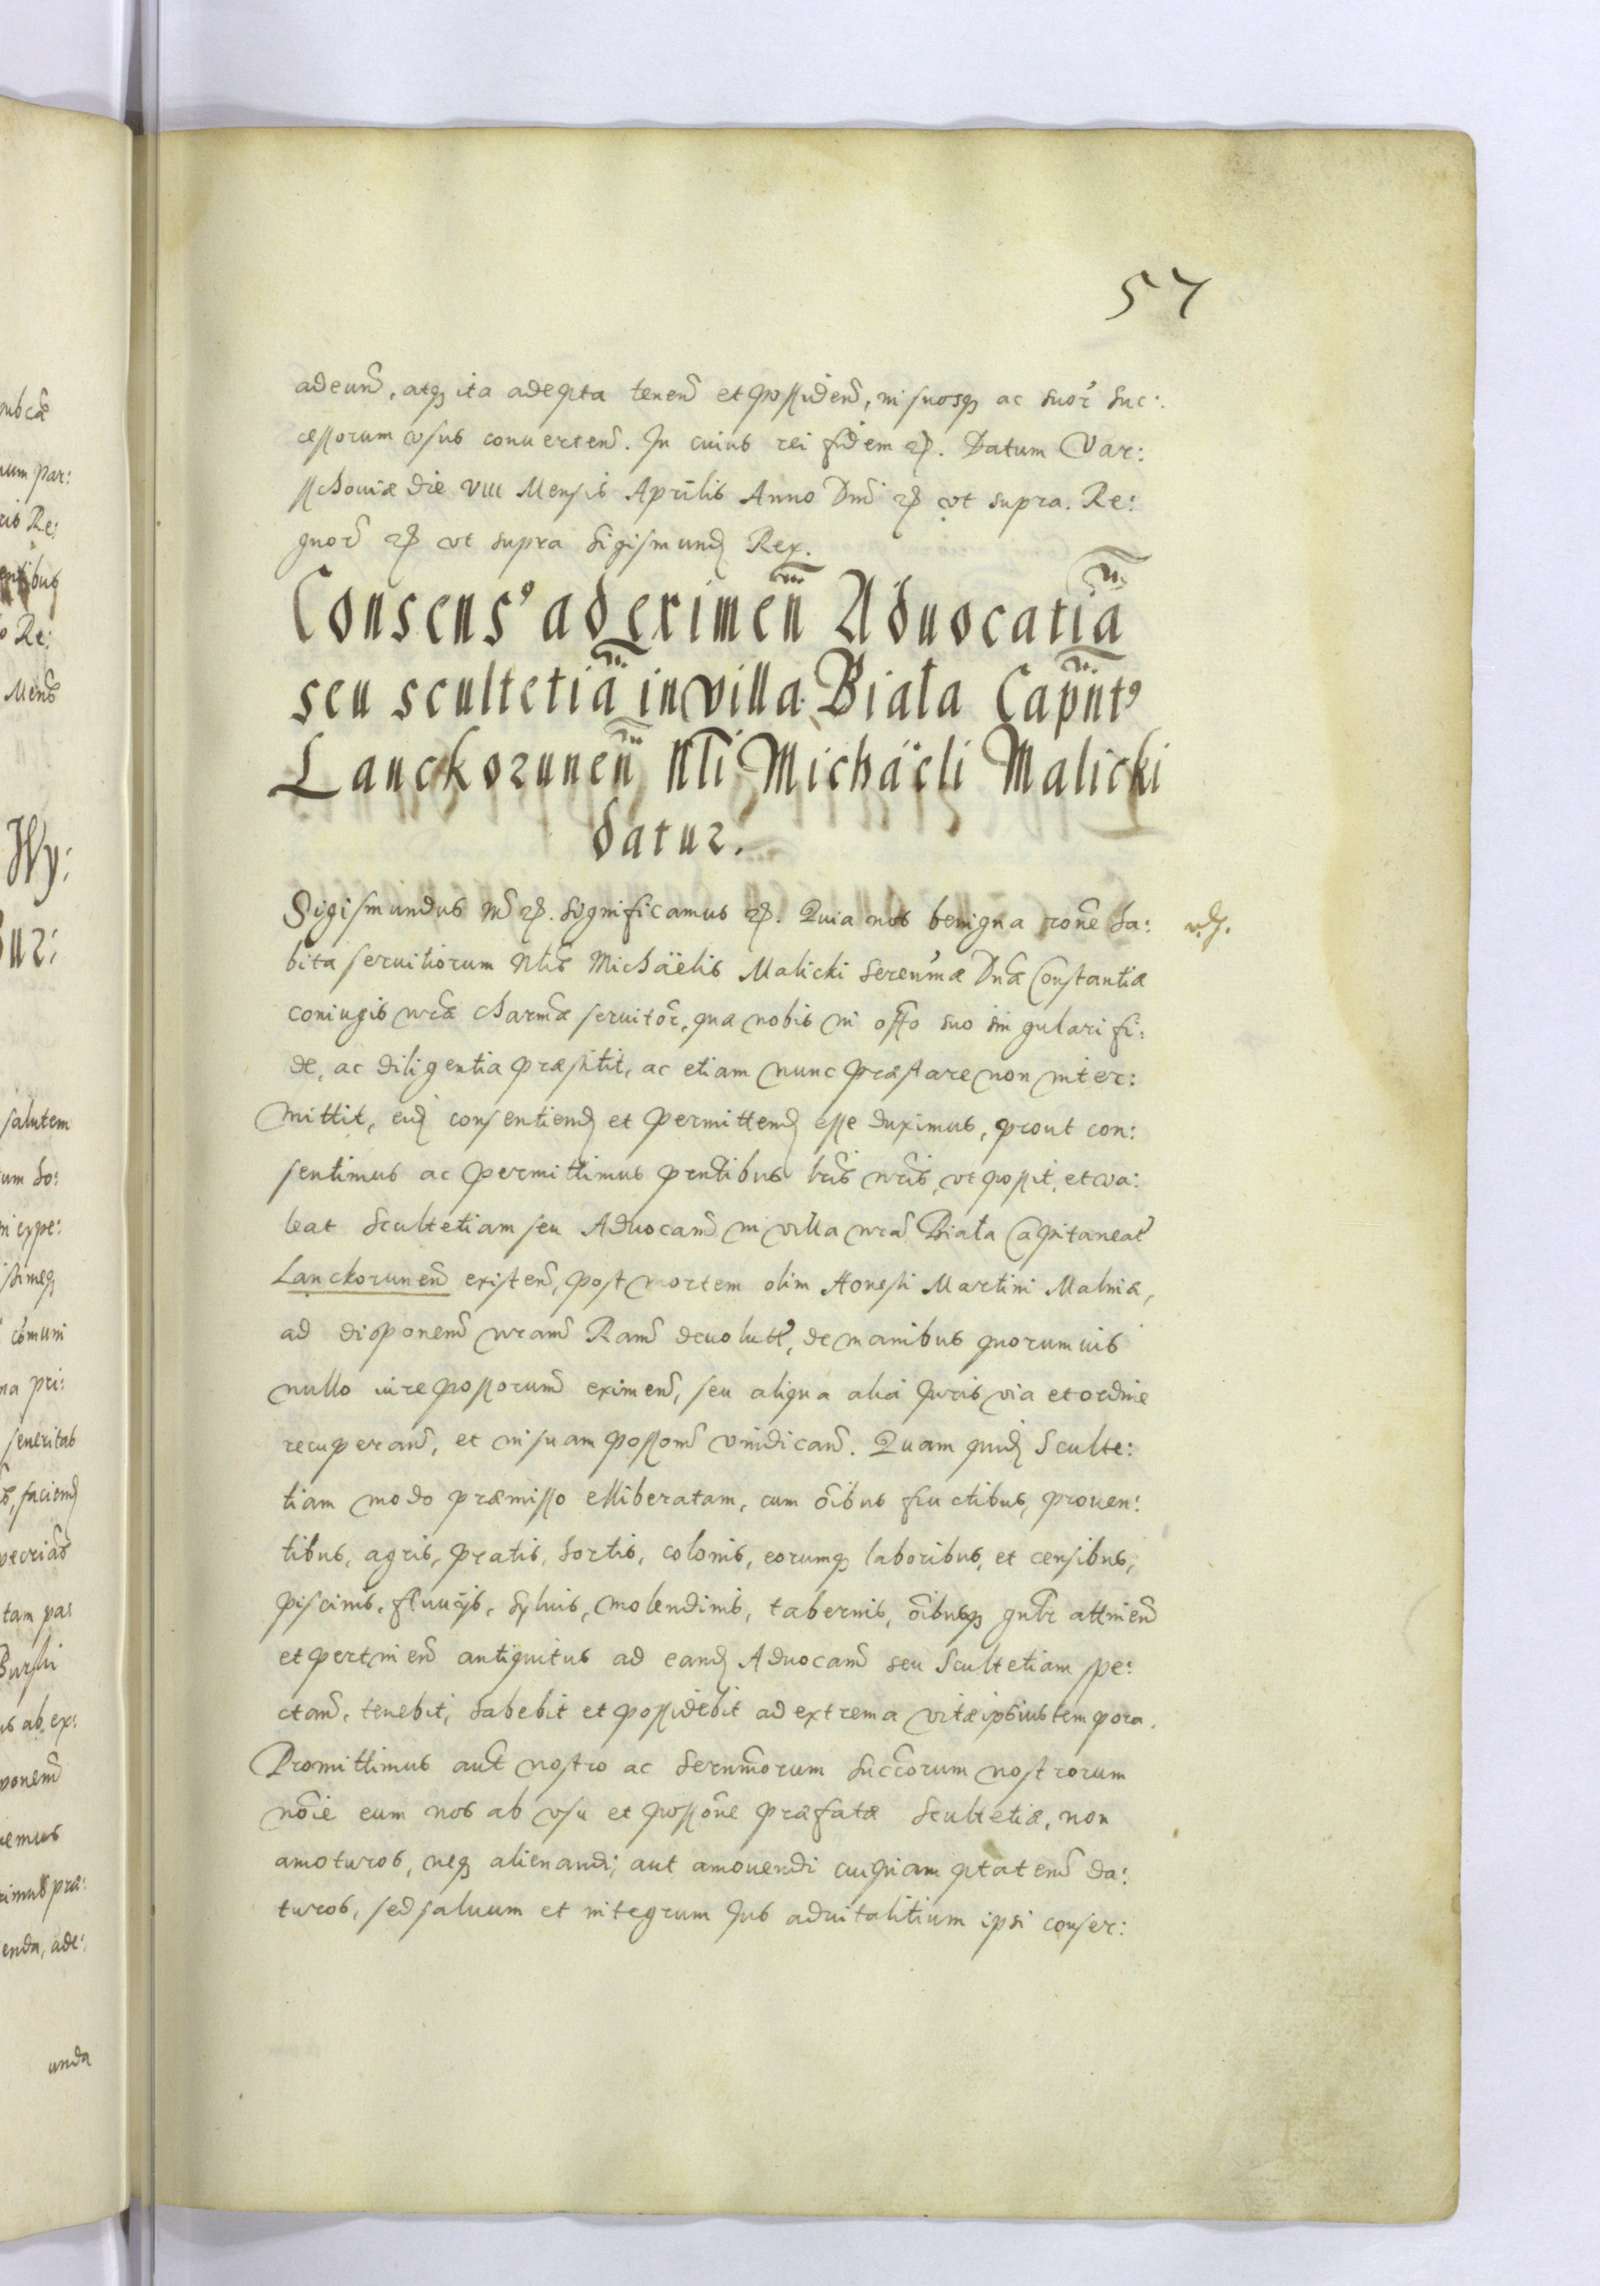 57
adeund, atq3 ita adepta tenend et possidend, in suosq3 ac suor suc:
cessorum vsus conuertend. In cuius rei fidem etc. Datum Var:
schouiæ die VIII Mensis Aprilis Anno Dnī etc vt supra. Re:
gnor etc vt supra Sigismund Rex.
Consens9 ad eximen̄ Aduocatiā
seu scultetiā in villa Biała Capn̄t9
Lanckorunen̄ Nlī Michaëli Malicki
datur.
Sigismundus etc. Significamus etc. Quia nos benigna rone ha:
bita seruitiorum Nlis Michaëlis Malicki Serenmæ Dnæ Constantiæ
coniugis nræ charmæ seruitor, quæ nobis in offo suo singulari fi:
de, ac diligentia præstitit, ac etiam nunc præstare non inter:
mittit, eid consentiend et permittend esse duximus, prout con:
sentimus ac permittimus pntibus lris nris, vt possit, et va:
leat Scultetiam seu Aduocam in villa nra Biała Capitaneat
Lanckorunen existen, post mortem olim Honesti Martini Malnia,
ad disponem nram Ram deuolut, de manibus quorumuis
nullo iure possorum eximend, seu aliqua alia Juris via et ordine
recuperand, et in suam possom vindicand. Quam quid Sculte:
tiam modo præmisso elliberatam, cum oibus fructibus, prouen:
tibus, agris, pratis, hortis, colonis, eorumq3 laboribus, et censibus,
piscinis, fluuijs, syluis, molendinis, tabernis, oibusq3 gnlr attinen
et pertinen antiquitus ad eand Aduocam seu Scultetiam spe:
ctan, tenebit, habebit et possidebit ad extrema vitæ ipsius tempora.
Promittimus aut nostro ac Sernmorum Succorum nostrorum
noie eum nos ab vsu et possone præfatæ Scultetiæ, non
amoturos, neq3 alienandi, aut amouendi cuiquam ptatem da:
turos, sed saluum et integrum Jus aduitalitium ipsi conser: